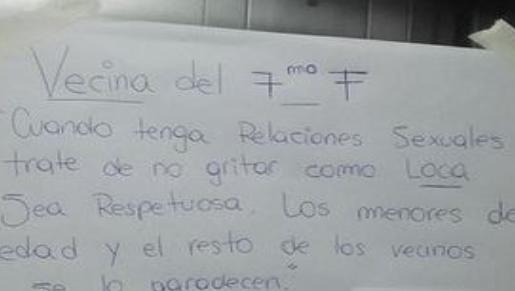 Vecina del 7mo F
"Cuando tenga Relaciones Sexuales
trate de no gritar como Loca
Sea Respetuosa. Los menores de
edad y el resto de los vecinos
se lo agradecen."